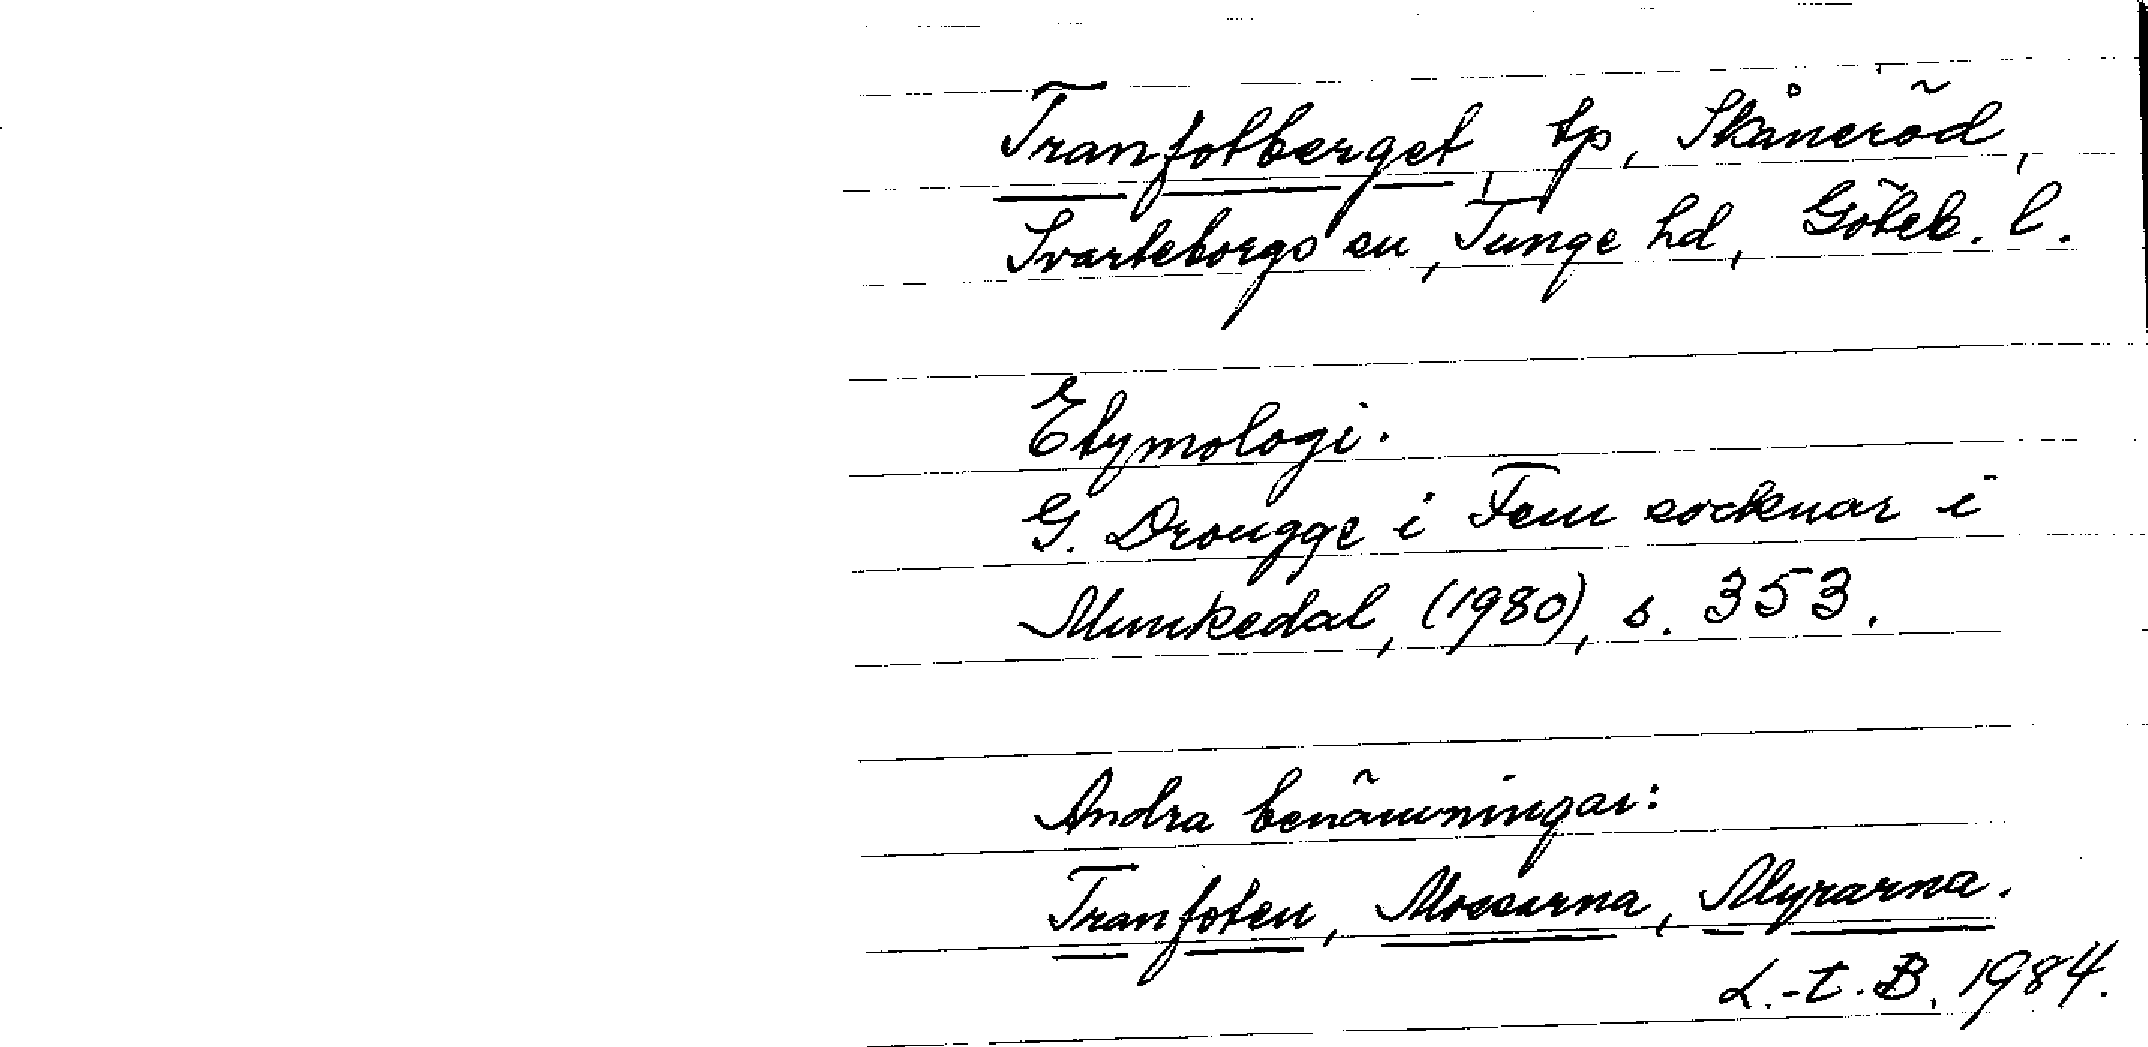 Tranfotberget, tp, Skåneröd,
Svarteborgs sn, Tunge hd, Göteb. l.
Etymologi.
G. Drougge i Fem socknar i
Munkedal, (1980), s. 353.
Andra benämningar:
Tranfoten, Mossarna, Myrarna.
L.-t. B. 1984.